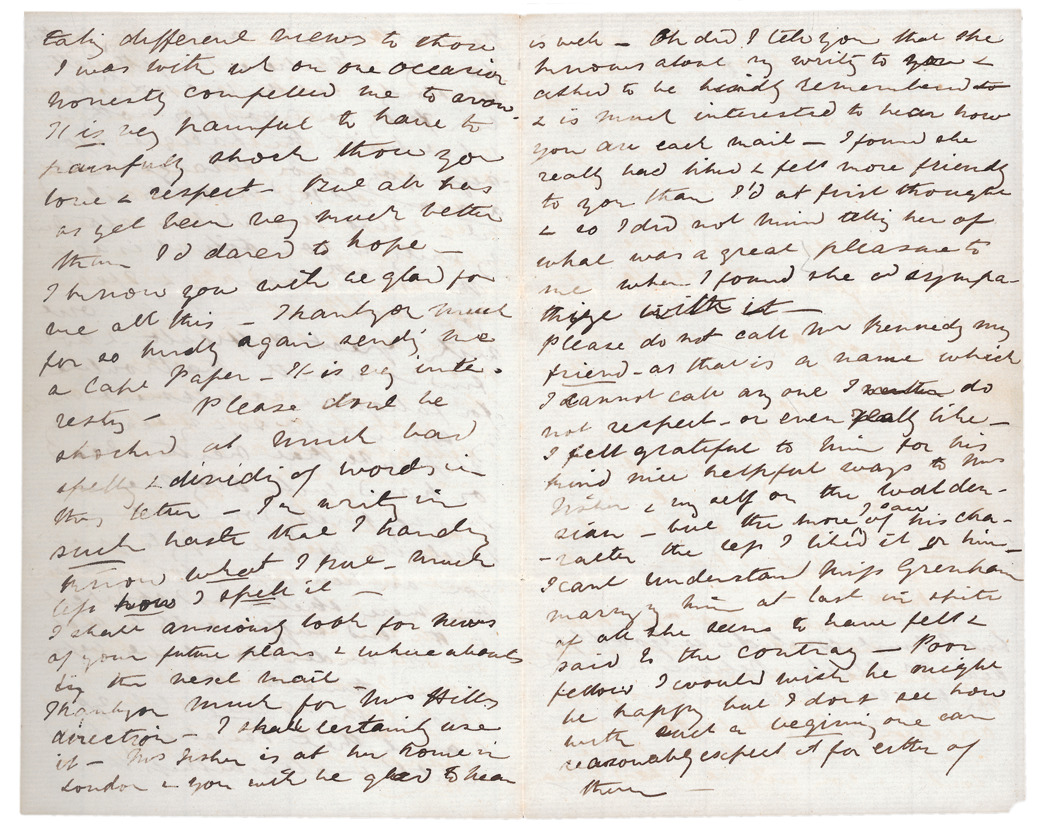 taking different views to those
I was with wh on one occasion
honesty compelled me to avow.
It is very painful to have to
painfully shock those you
love & respect - But all has
as yet been very much better
than I'd dared to hope -
I know you will be glad for
me all this - Thankyou much
for so kindly again sendg me
a Cape Paper - It is very inte-
resty - Please dont be
shocked at much bad
spellg & dividig of words in
this letter - I'm writg in
such haste that I hardly
know what I put - much
less how I spell it -
I shall anxiously look for news
of your future plans & whereabouts
by the next mail -
Thankyou much for Mrs Hills
direction - I shall certainly use
it - Mrs Fisher is at her home in
London & you will be glad to hear
is well - Oh did I tell you that she
knows about my writg to you &
asked to be kindly remembered to
& is much interested to hear how
you are each mail - I found she
really had liked & felt more friendly
to you than I'd at first thought
& so I did not mind tellg her of
what was a great pleasure to
me when I found she cd sympa-
thize with it -
Please do not call Mr Kennedy my
friend - as that is a name which
I cannot call any one I do
not respect - or even really like -
I felt grateful to him for his
kind nice helpful ways to Mrs
Fisher & myself on the Walden-
sian - but the more I saw of his cha-
-racter the less I liked it or him -
I cant understand Miss Grenham
marryg him at last in spite
of all she seems to have felt &
said to the contrary - Poor
fellow I would wish he might
be happy but I dont see how
with such a beginning one can
reasonably expect it for either of
them -